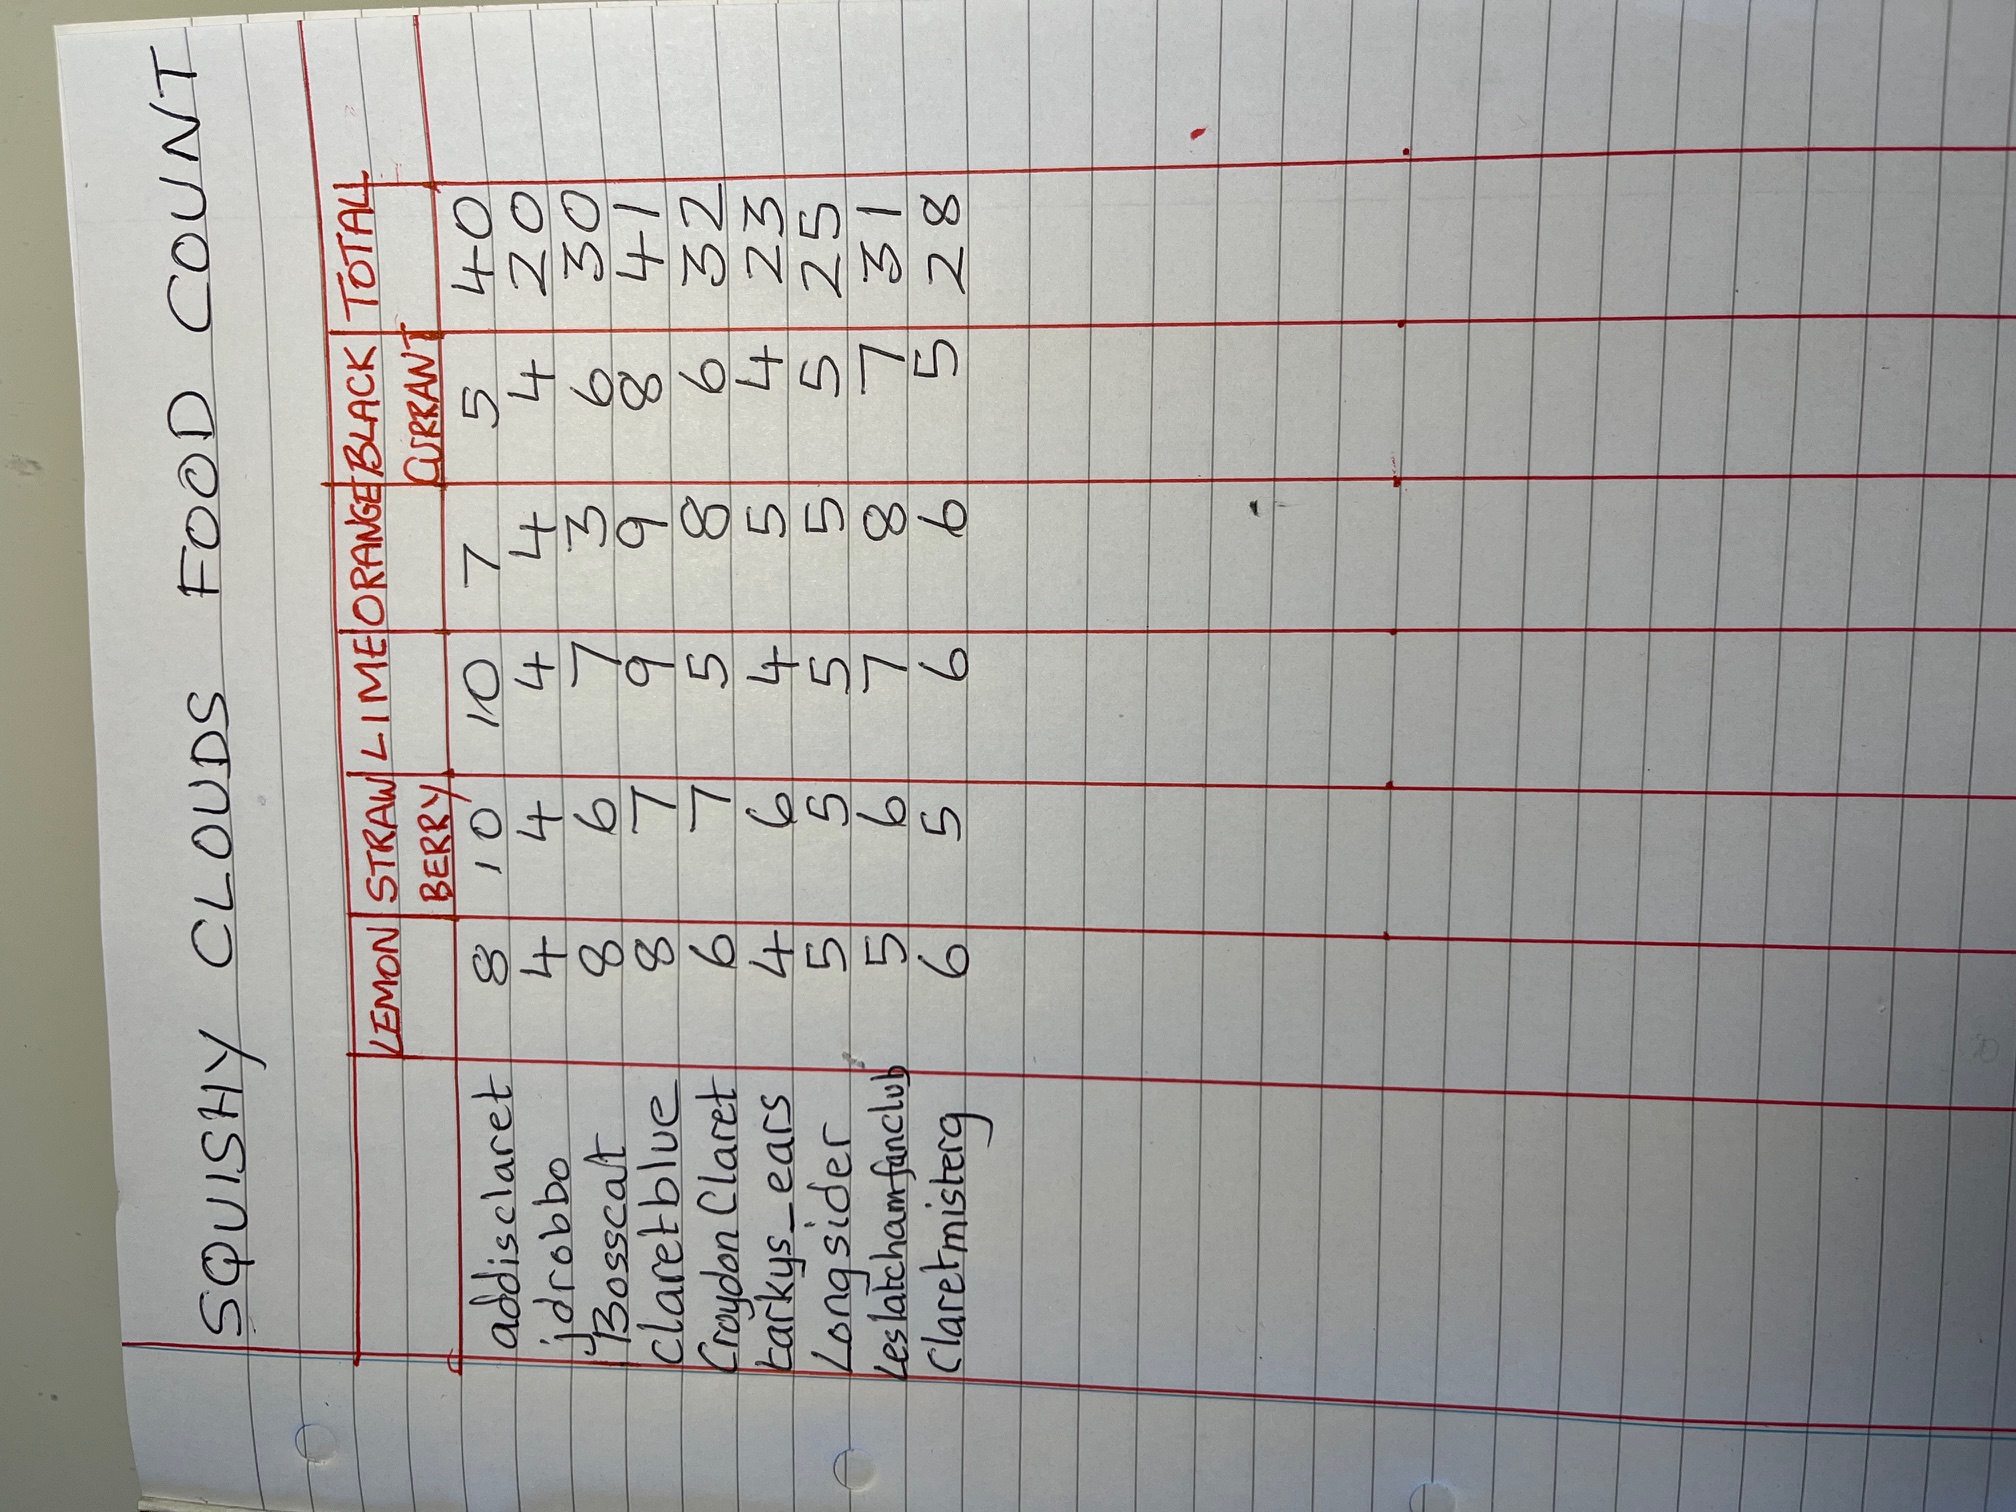 SQUISHY CLOUDS FOOD COUNT
LEMON STRAW LIME ORANGE BLACK TOTAL
BERRY CURRANT
addisclaret 8 10 10 7 5 40
jdrobbo 4 4 4 4 4 20
Bosscat 8 6 7 3 6 30
claretblue 8 7 9 9 8 41
Croydon Claret 6 7 5 8 6 32
tarkys_ears 4 6 4 5 4 23
Longsider 5 5 5 5 5 25
Leslatchamfanclub 5 6 7 8 7 31
Claretmisterg 6 5 6 6 5 28